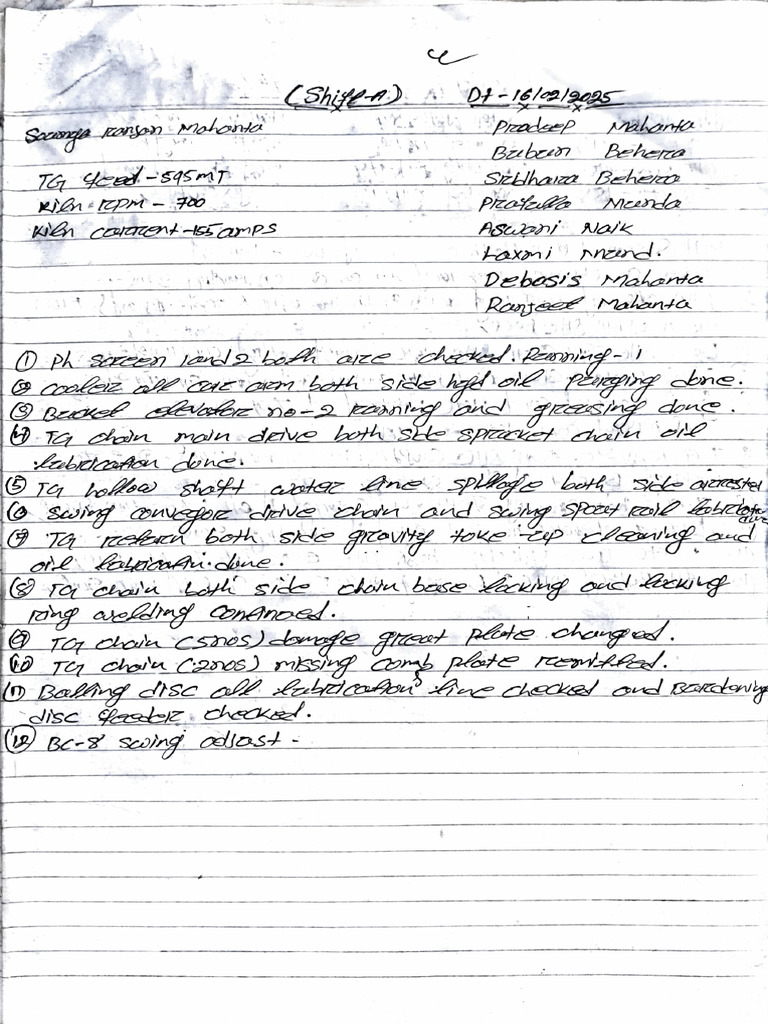 (Shift-A) Dt-16/02/2025
Ranjan Mahanta
Pradeep Mahanta
Babun Behera
TG feed-595MT
Sribhara Behera
Kiln RPM - 700
Prafulla Munda
Kiln current-155amps
Aswani Naik
Laxmi Mund.
Debasis Mahanta
Ranjeet Mahanta
① Ph screen 1and2 both are checked. Running-1
② Cooler all car arm both side hyd oil Purging done.
③ Bucket elevator no-2 running and greasing done.
④ TG chain main drive both side sprocket chain oil
lubrication done.
⑤ TG hollow shaft water line spillage both side arrested
⑥ Swing conveyor drive chain and swing spout rail lubrication done
⑦ TG return both side gravity take-up cleaning and
oil lubrication done.
⑧ TG chain both side chain base locking and locking
ring welding continued.
⑨ TG chain (5nos) damage great plate changed.
⑩ TG chain (2nos) missing comb plate remitted.
⑪ Balling disc all lubrication line checked and
disc feeder checked.
⑫ BC-8 swing adjast -